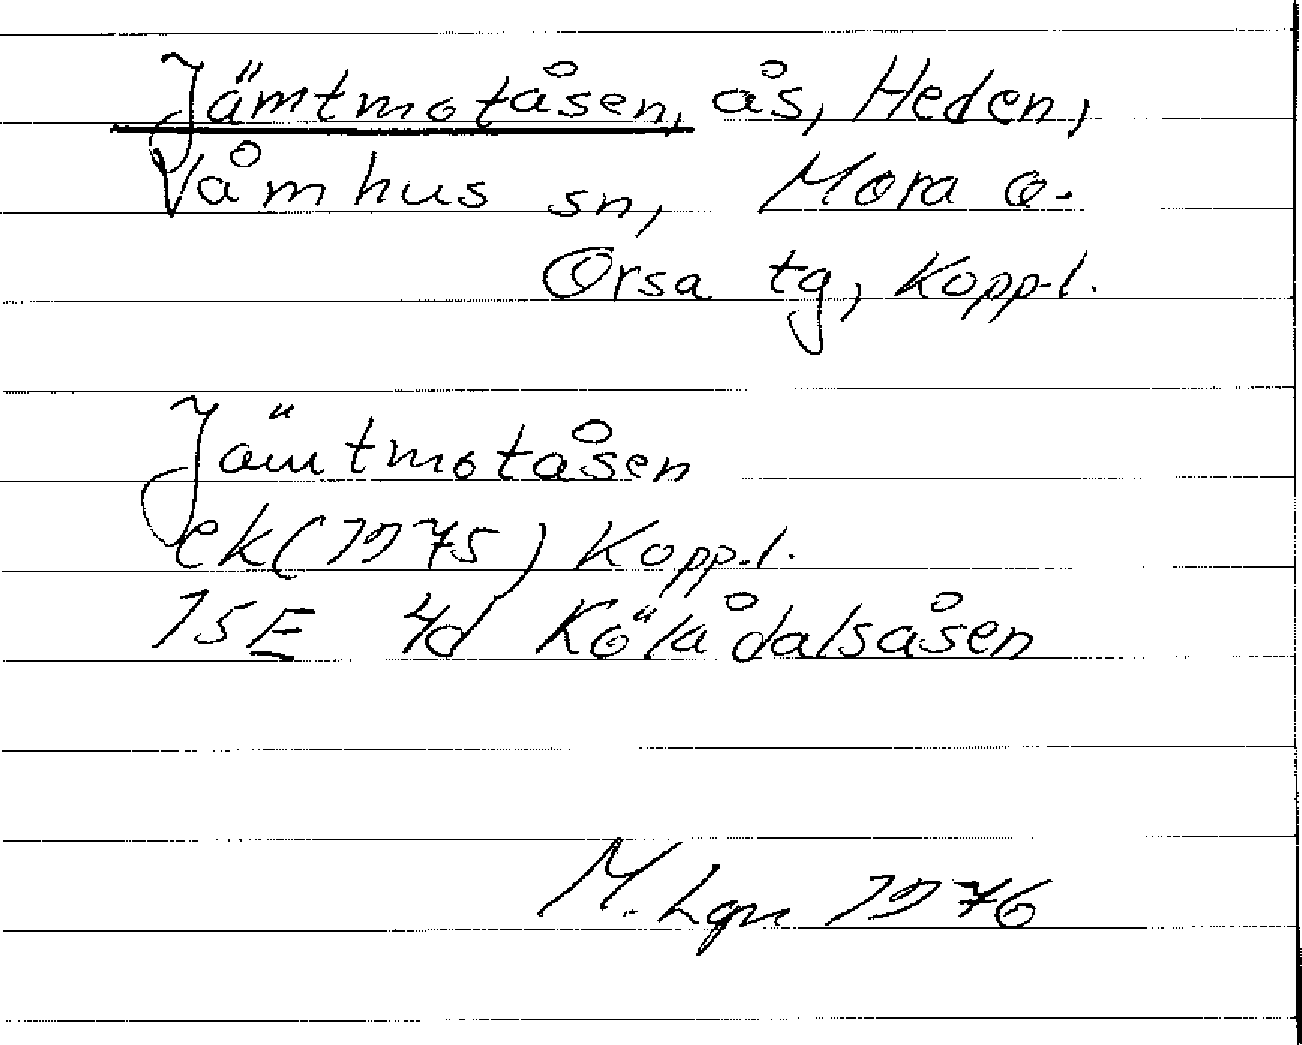 Jämtmotåsen, ås, Heden,
Våmhus sn, Mora o.
Orsa tg, Kopp.l.
Jämtmotåsen
ek (1975) Kopp.l.
15E 4d Kölådalsåsen
M. Lgn 1976